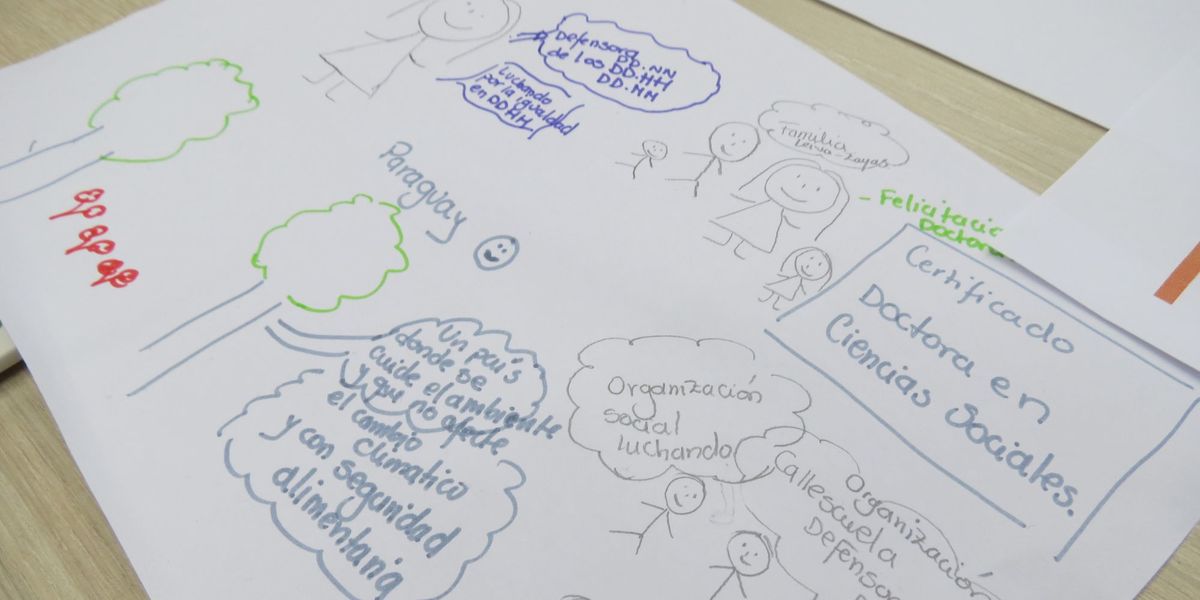 Defensora
DD.NN
de los DD.HH
DD.NN
Luchando
por la igualdad
en DDHH
Familia
Paraguay
- Felicitacio
Doctora
Certificado
Doctora en
Ciencias Sociales.
Un país
donde se
cuide el ambiente
y que no afecte
el
climatico
y con seguridad
alimentaria
Organización
social
luchando
Organización
Callescuela
Defensor